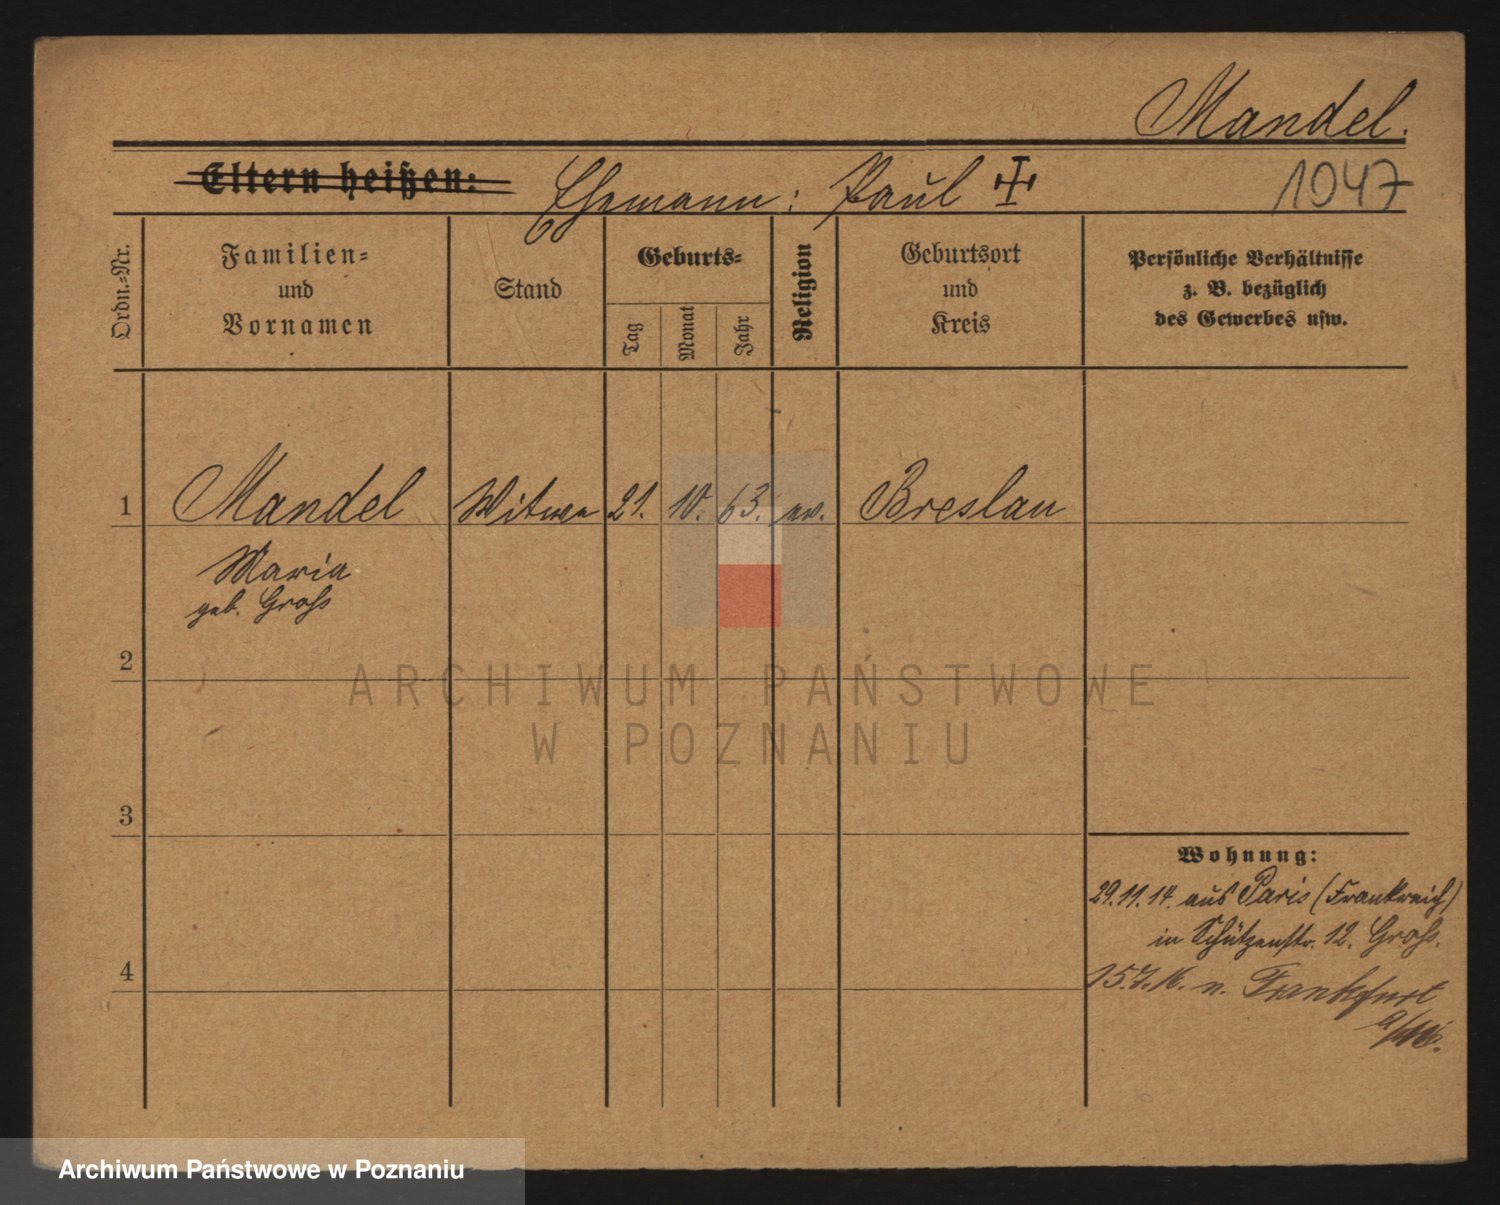 Mandel.
Eltern heißen: Ehemann: Paul
1047
Ordn.-Nr.
Familien-
und
Vornamen
Stand
Geburts-
Tag
Monat
Jahr
Religion
Geburtsort
und
Kreis
Persönliche Verhältnisse
z. B. bezüglich
des Gewerbes usw.
1 Mandel Witwe 21. 10. 63. ev. Breslau
Maria
geb. Groß
2
ARCHIWUM PAŃSTWOWE
W POZNANIU
3
Wohnung:
29.11.14. aus Paris (Frankreich)
in Schützenstr. 12. Groß.
4
15.7.16. n. Frankfurt
Archiwum Państwowe w Poznaniu